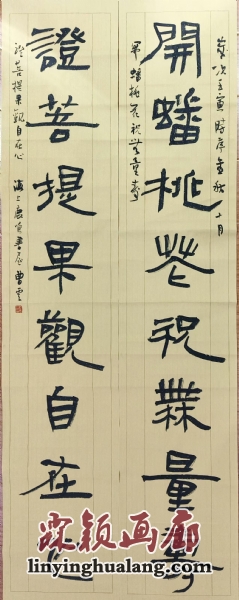 歲次壬寅時序金秋十月
開蟠桃花祝無量壽
開蟠桃花祝無量壽
證菩提果觀自在心
證菩提果觀自在心
海上
書屋曹雲
霖颖画廊
www.linyinghualang.com